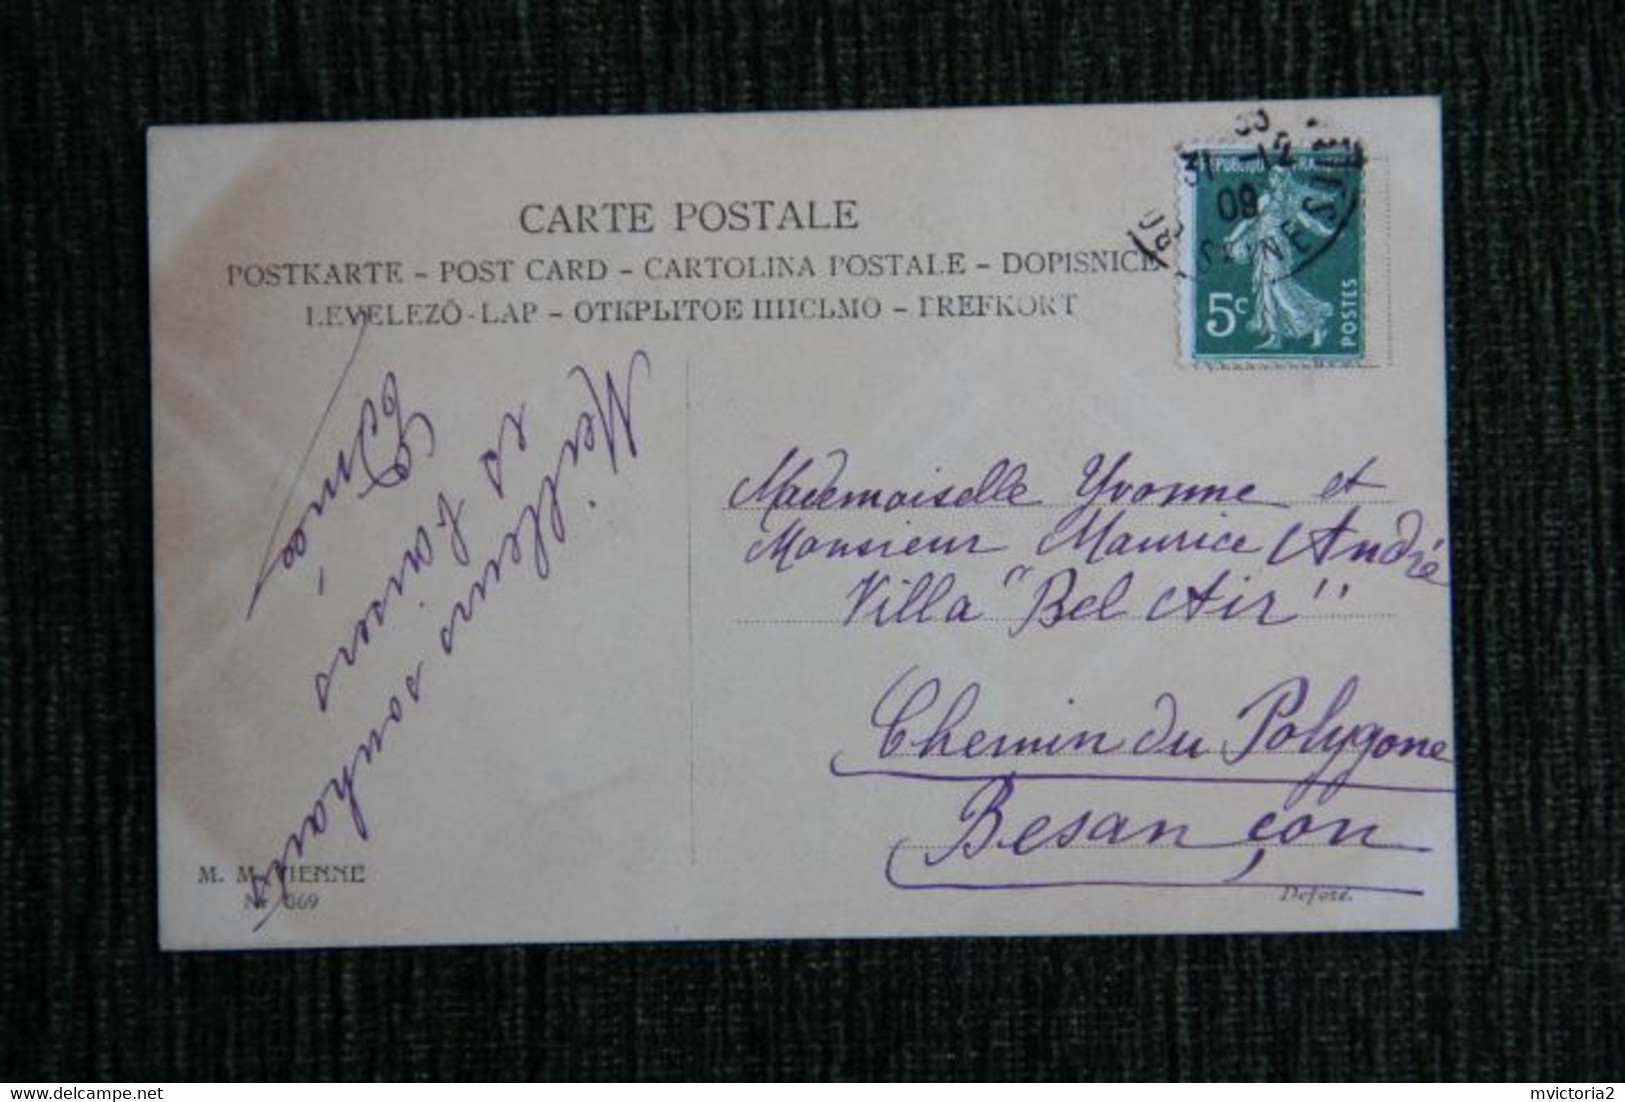 CARTE POSTALE
POSTKARTE – POST CARD – CARTOLINA POSTALE – DOPISNICE
LEVELEZŐ-LAP – ОТКРЫТОЕ ПИСЬМО – BREFKORT
5c
POSTES
31 -12
09
SEINE
Meilleurs souhaits
et baisers
Mademoiselle Yvonne et
Monsieur Maurice André
Villa "Bel Air"
Chemin du Polygone
Besançon
M. M. VIENNE
Nr 369
Déposé.
mvictoria2
delcampe.net